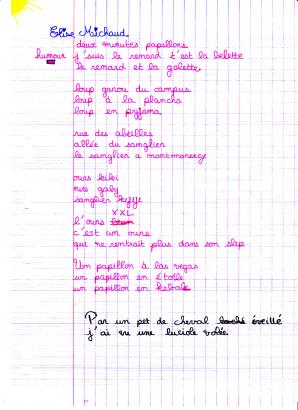 Elise Michaud
deux minutes papillons
humour j'suis le renard t'est la belette
le renard et la galette,
loup garou du campus
loup à la plancha
loup en pyjama
rue des abeilles
allée du sanglier
le sanglier a montmorency
ours kiki
ours gaby
sanglier
XXL
l'ours
c'est un ours
qui ne rentrait plus dans son slip
Un papillon à las vegas
un papillon en étoile
un papillon en
Par un pet de cheval éveillé
j'ai vu une luciole votée